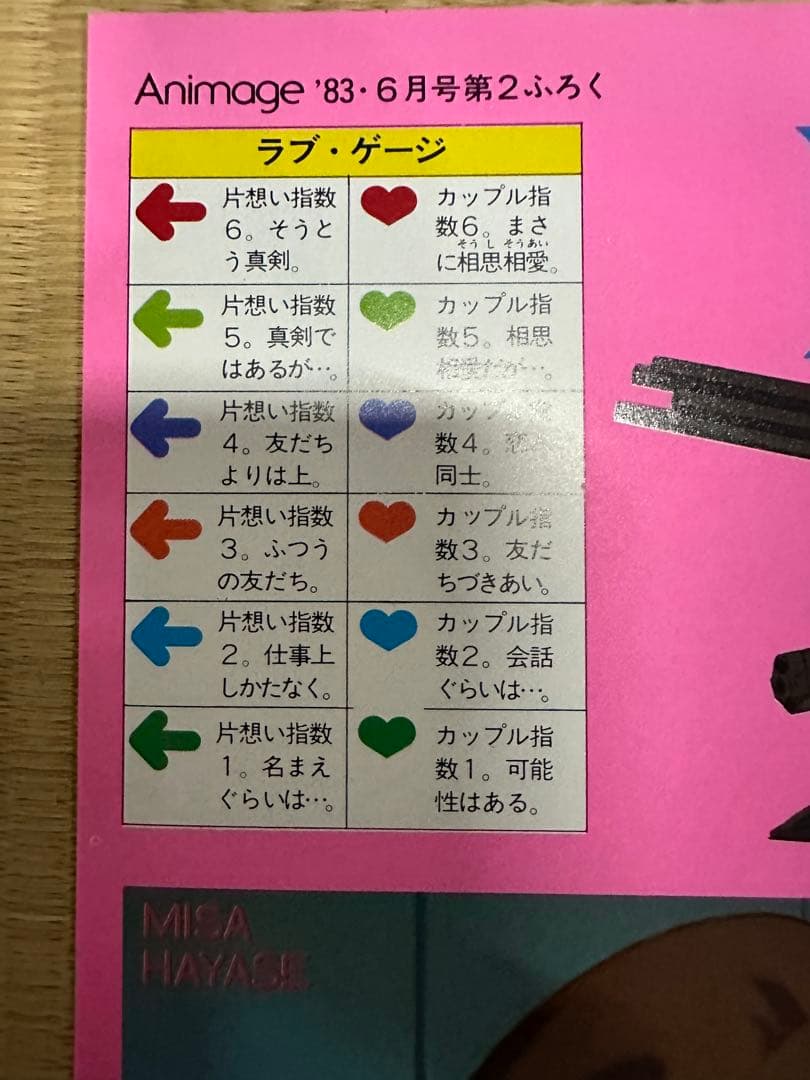 Animage '83・6月号第2ふろく
ラブ・ゲージ
片想い指数
6。そうと
う真剣。
カップル指
数6。まさ
そうしそうあい
に相思相愛。
片想い指数
5。真剣で
はあるが…。
カップル指
数5。相思
相愛だが…。
片想い指数
4。友だち
よりは上。
カップル指
数4。
同士。
片想い指数
3。ふつう
の友だち。
カップル指
数3。友だ
ちづきあい。
片想い指数
2。仕事上
しかたなく。
カップル指
数2。会話
ぐらいは…。
片想い指数
1。名まえ
ぐらいは…。
カップル指
数1。可能
性はある。
MISA
HAYASE